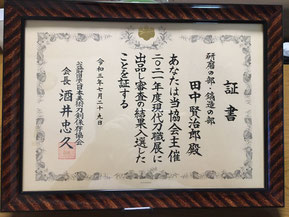 証書
研磨の部・鍛造の部
田中賢治郎殿
あなたは当協会主催
二〇二一年度現代刀職展に
出品し審査の結果入選した
ことを証する
令和三年七月二十九日
公益財団法人日本美術刀剣保存協会
会長 酒井忠久